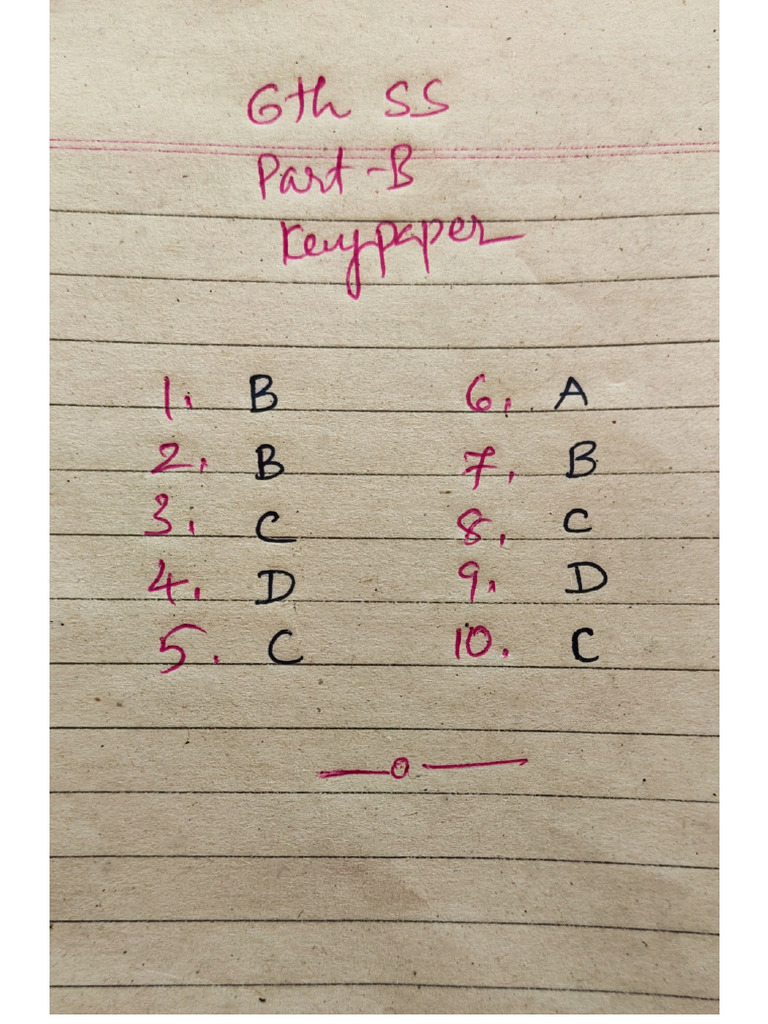 6th SS
Part-B
Keypaper
1. B 6. A
2. B 7. B
3. C 8. C
4. D 9. D
5. C 10. C